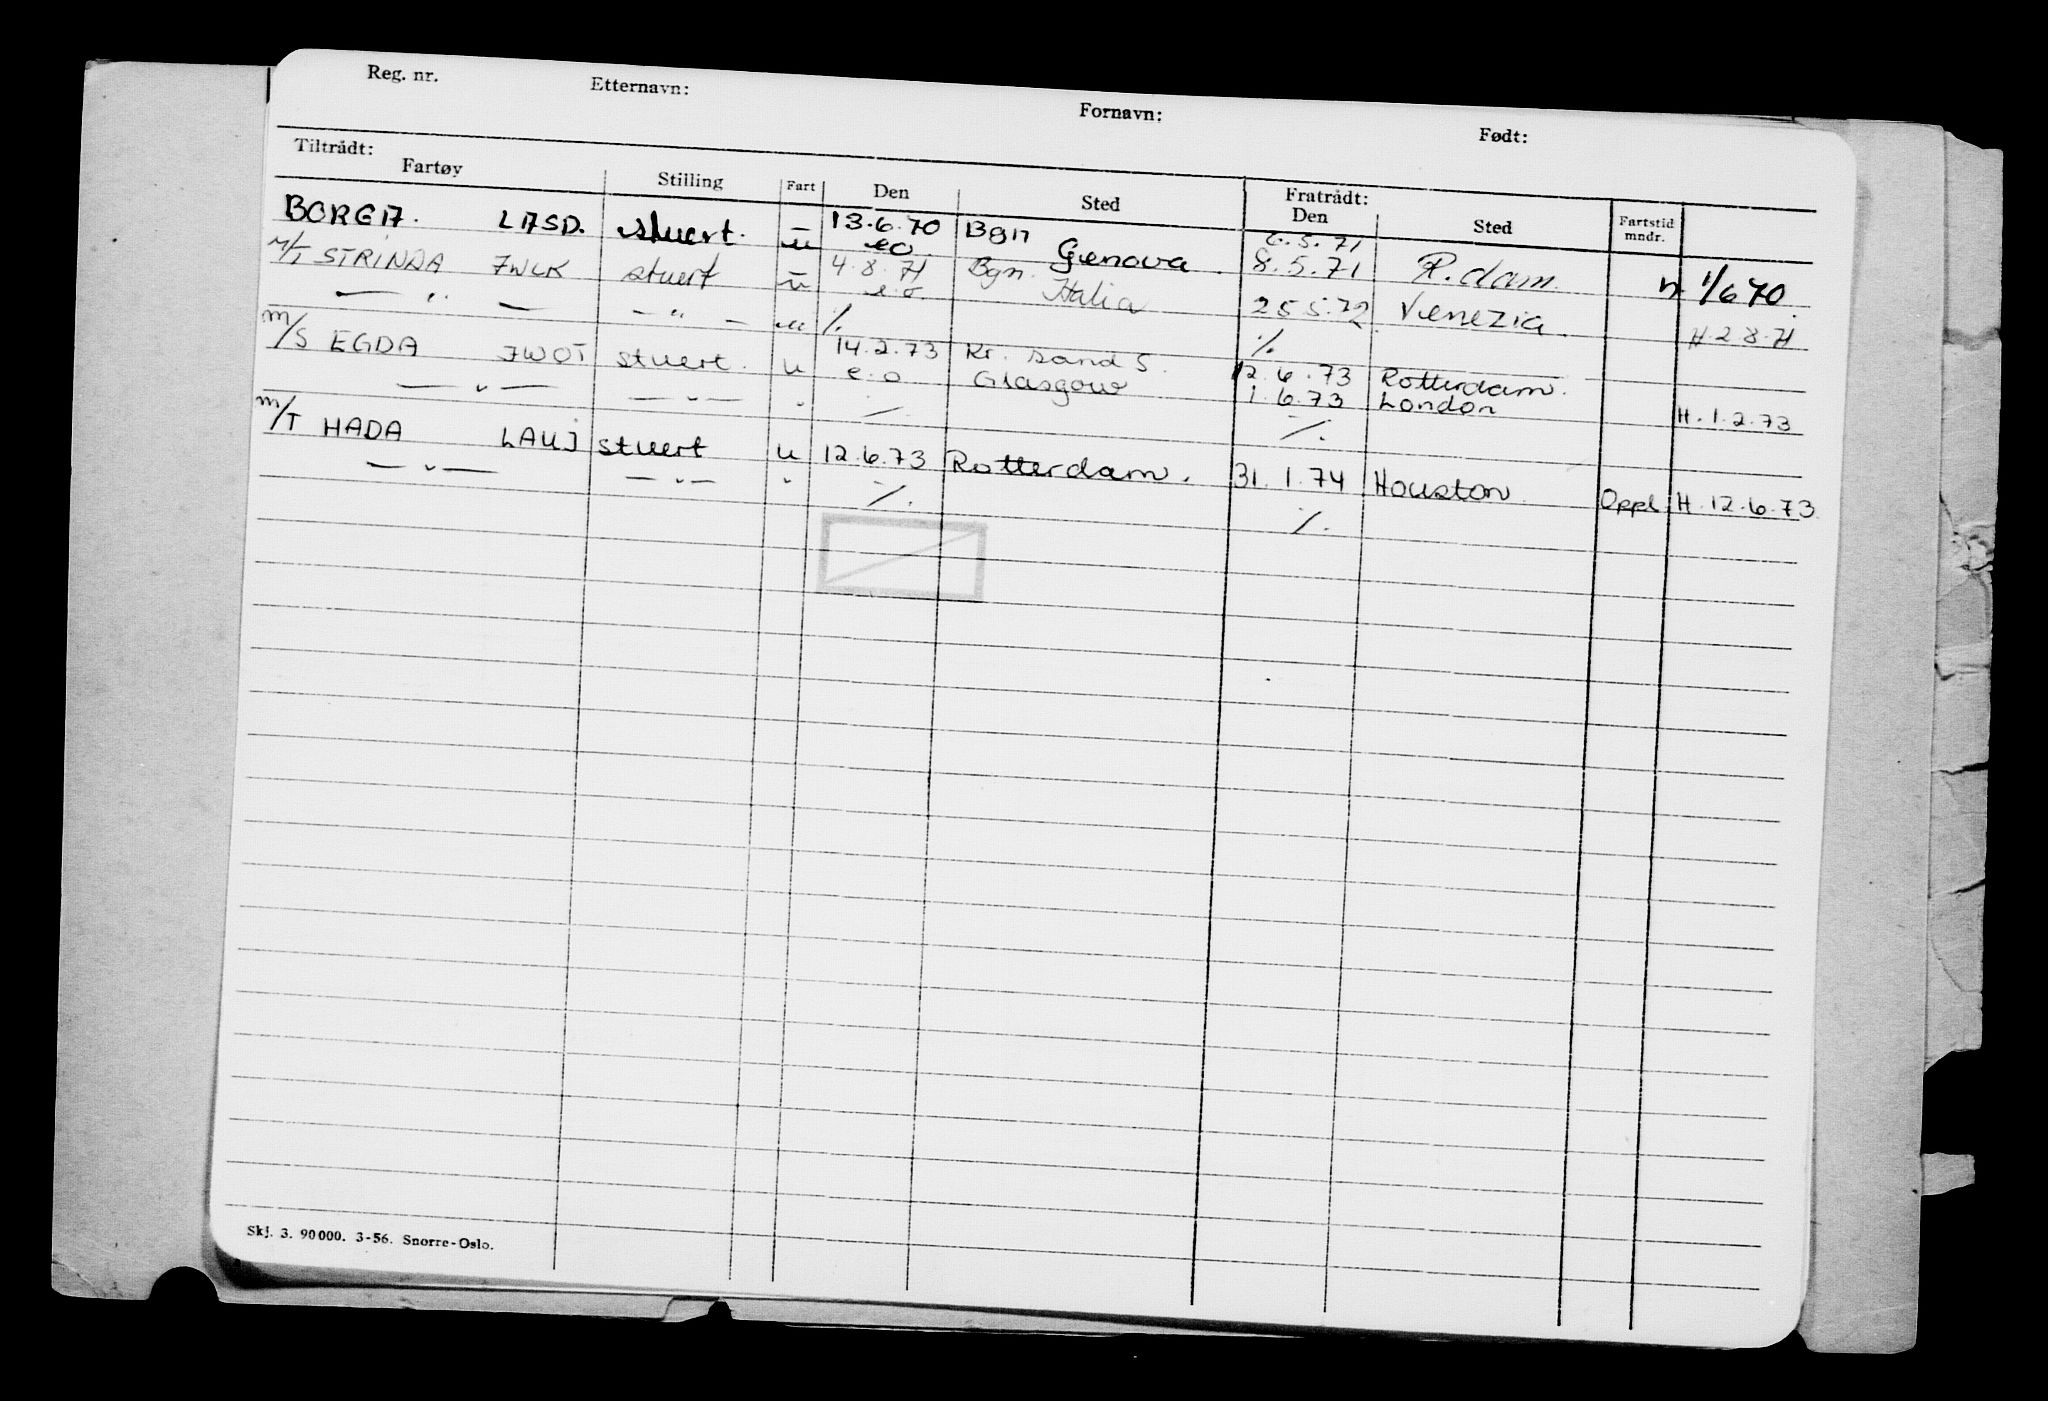 Reg. nr. Etternavn: Fornavn: Født:
Tiltrådt: Fratrådt:
Fartøy Stilling Fart Den Sted Den Sted Fartstid mndr.
BORGA. LASD. stuert. u 13.6.70 Bgn 6.5.71
eo Genova. 8.5.71 R.dam. H 1/6 70.
M/T STRINDA JWLK stuert u 4.8.71 Bgn.
e.o. Italia 25.5.72 Venezia. H.2.8.71
— " — — " — u ./. ./.
M/S EGDA JWOT stuert. u 14.2.73 Kr. sand S. 12.6.73 Rotterdam.
e.o Glasgow 1.6.73 London H.1.2.73
— " — — " — " ./. ./.
M/T HADA LAUJ stuert u 12.6.73 Rotterdam. 31.1.74 Houston. Oppl H.12.6.73
— " — — " — " ./. ./.
Skj. 3. 90000. 3-56. Snorre-Oslo.